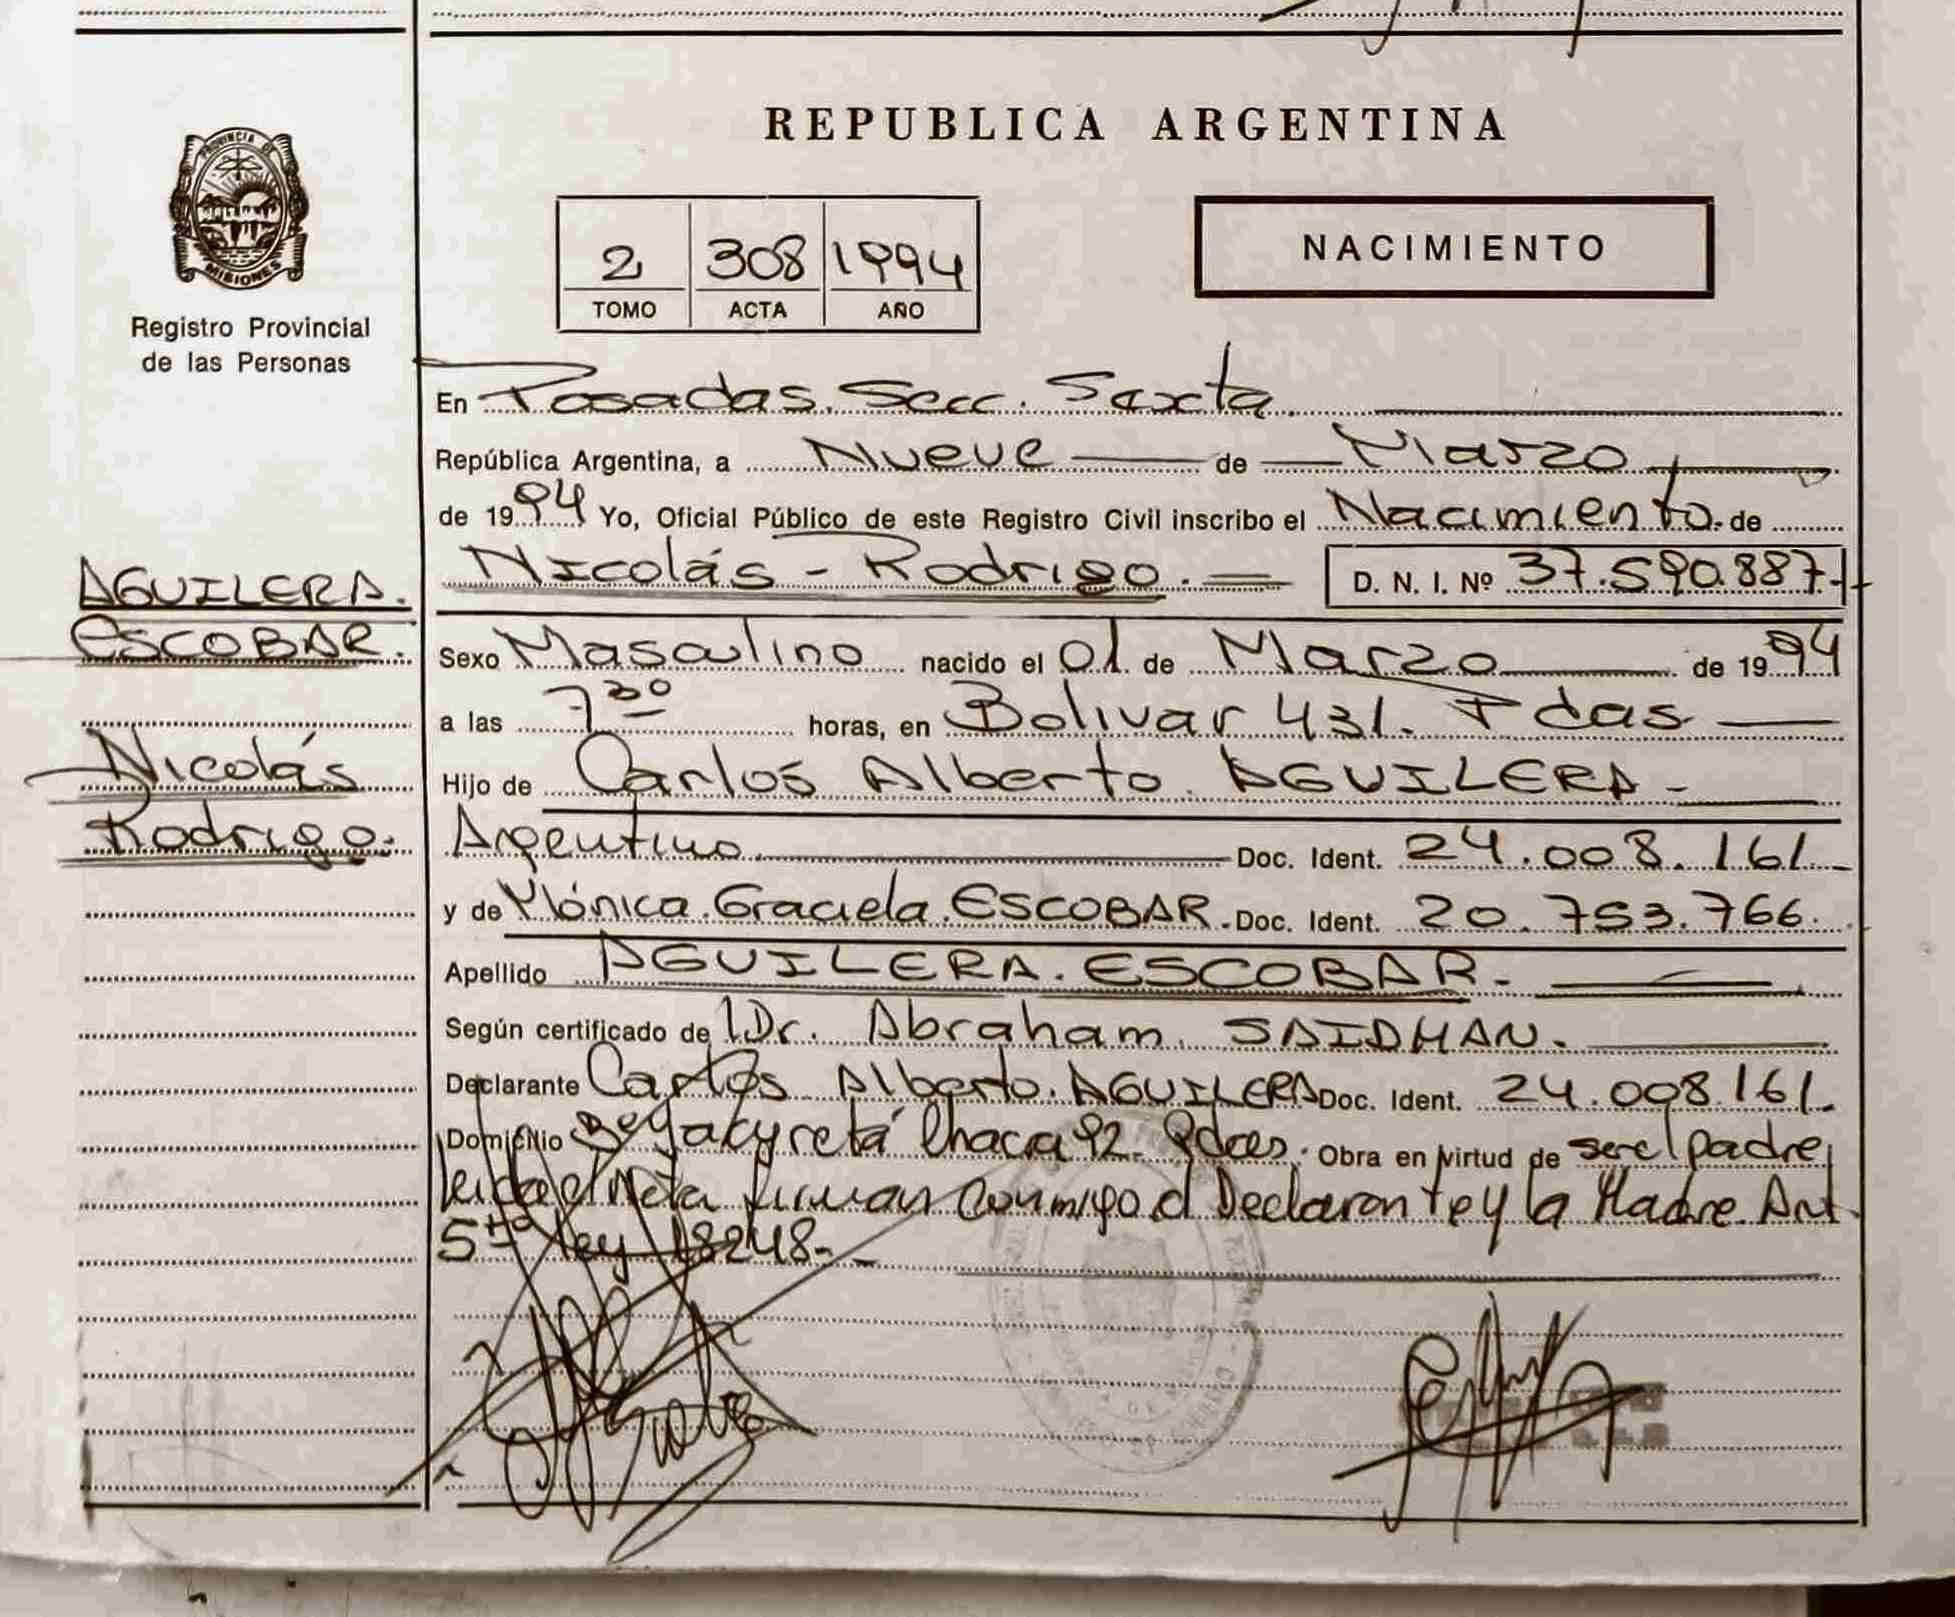 PROVINCIA DE
MISIONES
Registro Provincial
de las Personas
AGUILERA.
ESCOBAR.
Nicolás
Rodrigo.
REPUBLICA ARGENTINA
2 308 1994
TOMO ACTA AÑO
NACIMIENTO
En Posadas. Secc. Sexta.
República Argentina, a Nueve de Marzo
de 1994 Yo, Oficial Público de este Registro Civil inscribo el Nacimiento. de
Nicolás - Rodrigo. D. N. I. Nº 37.590.887.-
Sexo Masculino nacido el 01 de Marzo de 1994
a las 7 30 horas, en Bolivar 431. Pdas
Hijo de Carlos Alberto. AGUILERA -
Argentino. Doc. Ident. 24.008.161.
y de Mónica. Graciela. ESCOBAR. Doc. Ident. 20.753.766.
Apellido AGUILERA. ESCOBAR. -
Según certificado de Dr. Abraham. SAIDMAN.
Declarante Carlos Alberto. AGUILERA Doc. Ident. 24.008.161.
Domicilio Chaca 92. Pdas. Obra en virtud de ser el padre
firman conmigo el Declarante y la Madre. Art
5to ley 18248.-